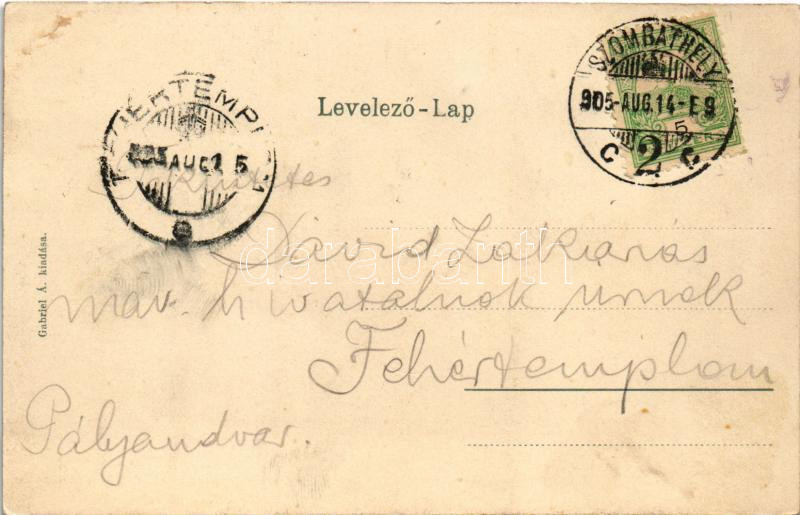 SZOMBATHELY
905-AUG.14-E9
5
C 2 C
Levelező-Lap
FEHÉRTEMPLOM
905 AUG 15
Tekintetes
Dávid Zakariás
máv. hivatalnok úrnak
Fehértemplom
Pályaudvar.
Gabriel Á. kiadása.
darabanth